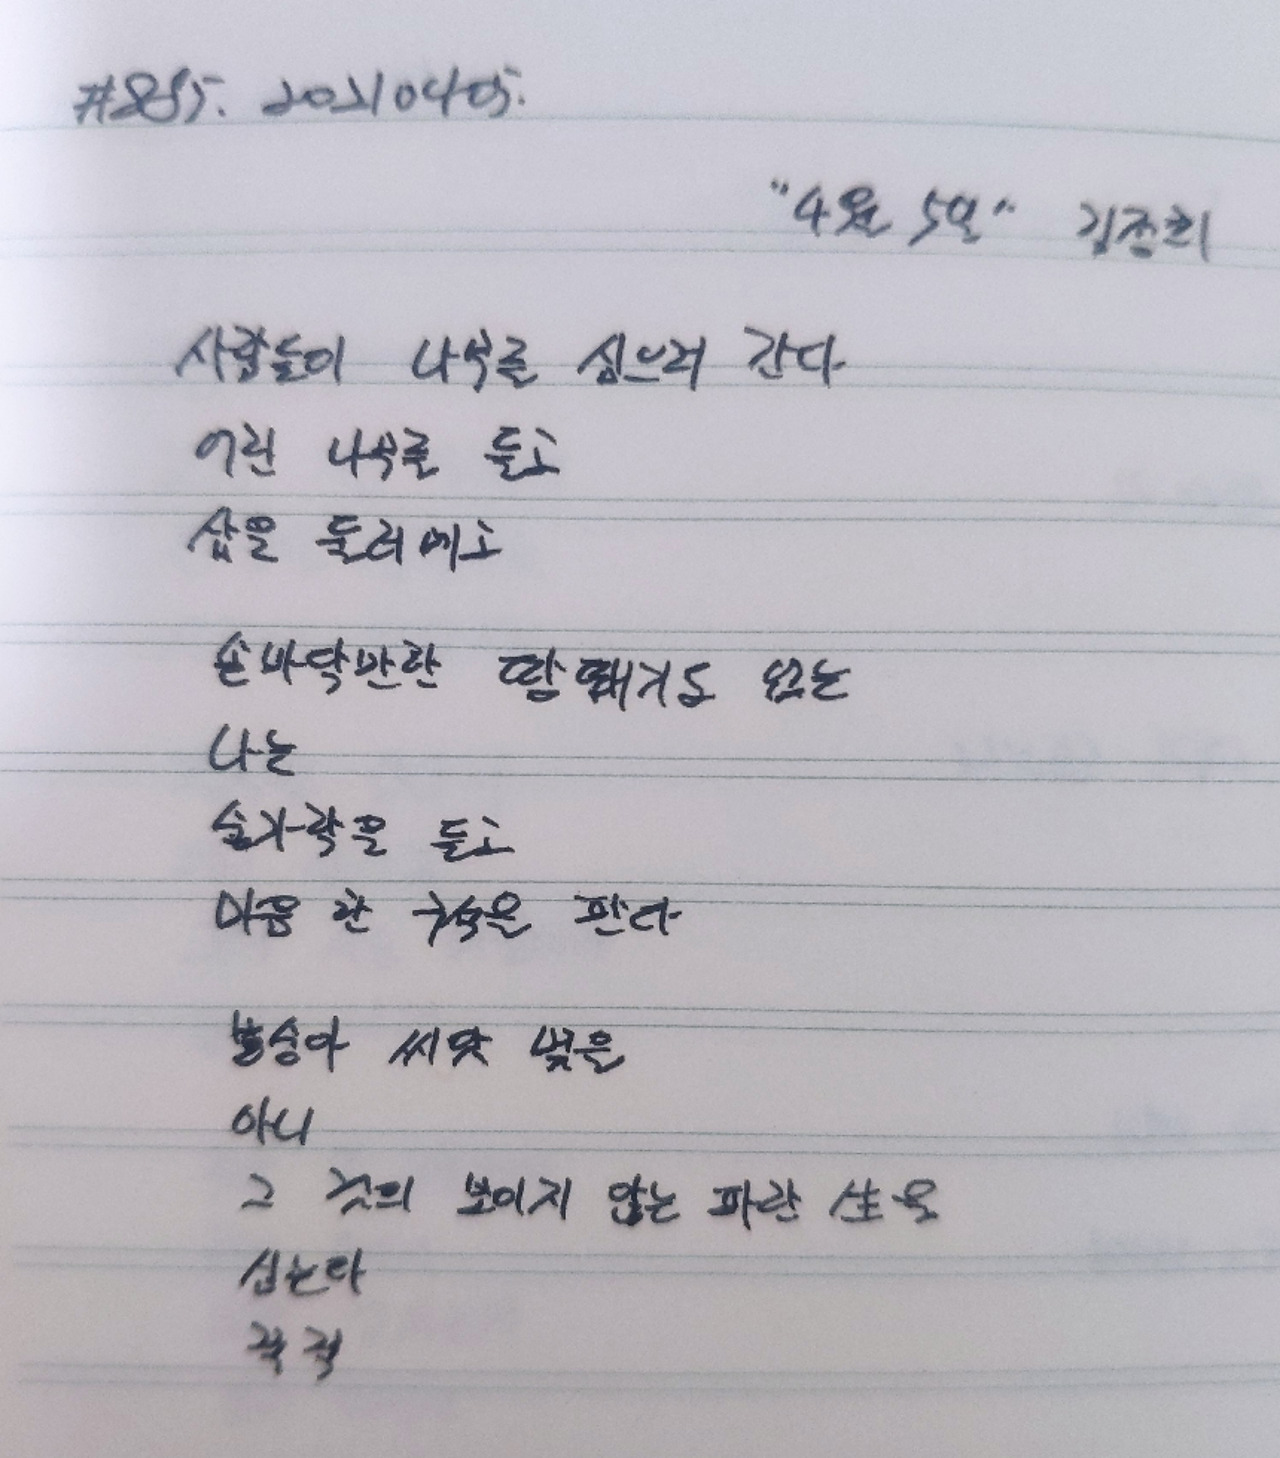 20210405.
"4월 5일" 김종희
사람들이 나무를 심으러 간다
어린 나무를 들고
삽을 둘러메고
손바닥만한 땅뙈기도 없는
나는
숟가락을 들고
마음 한 구석을 판다
봉숭아 씨앗 몇을
아니
그 것의 보이지 않는 파란 生을
심는다
꾹 꾹